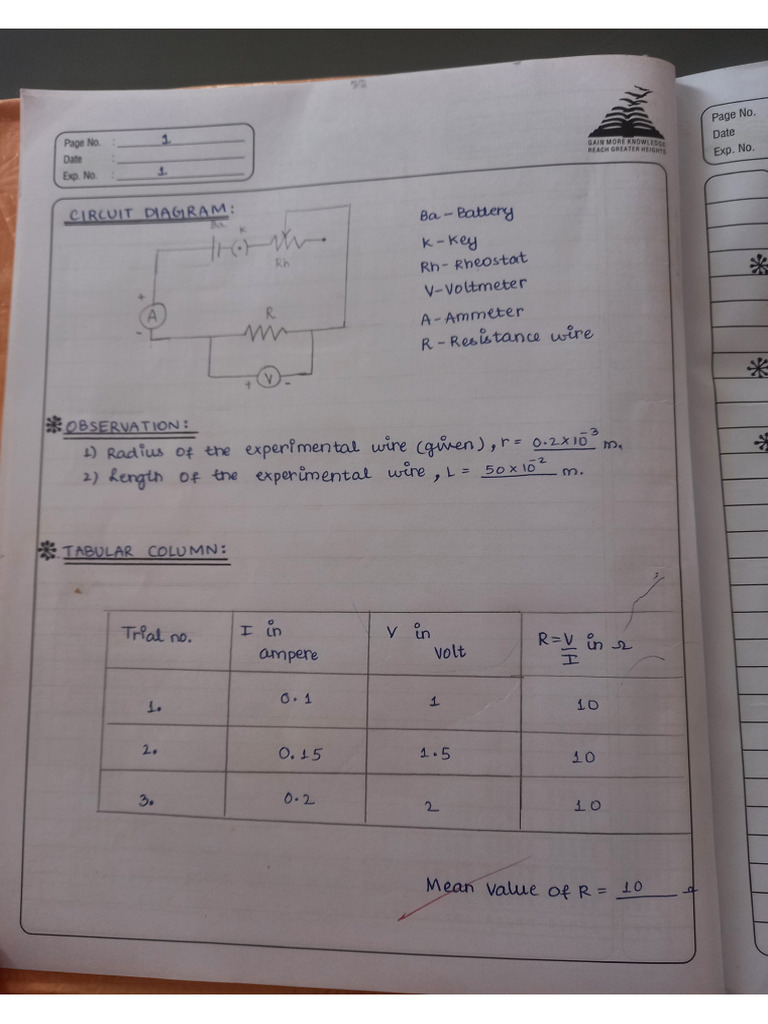 Page No. : 1
Date :
Exp. No. : 1
GAIN MORE KNOWLEDGE
REACH GREATER HEIGHTS
Page No.
Date
Exp. No.
CIRCUIT DIAGRAM:
Ba
K
Rh
+
A
-
R
+ V -
Ba - Battery
K - Key
Rh - Rheostat
V - Voltmeter
A - Ammeter
R - Resistance wire
OBSERVATION:
1) Radius of the experimental wire (given), r = 0.2 x 10⁻³ m.
2) Length of the experimental wire, L = 50 x 10⁻² m.
TABULAR COLUMN:
Trial no. I in ampere V in volt R = V/I in Ω
1. 0.1 1 10
2. 0.15 1.5 10
3. 0.2 2 10
Mean value of R = 10 Ω